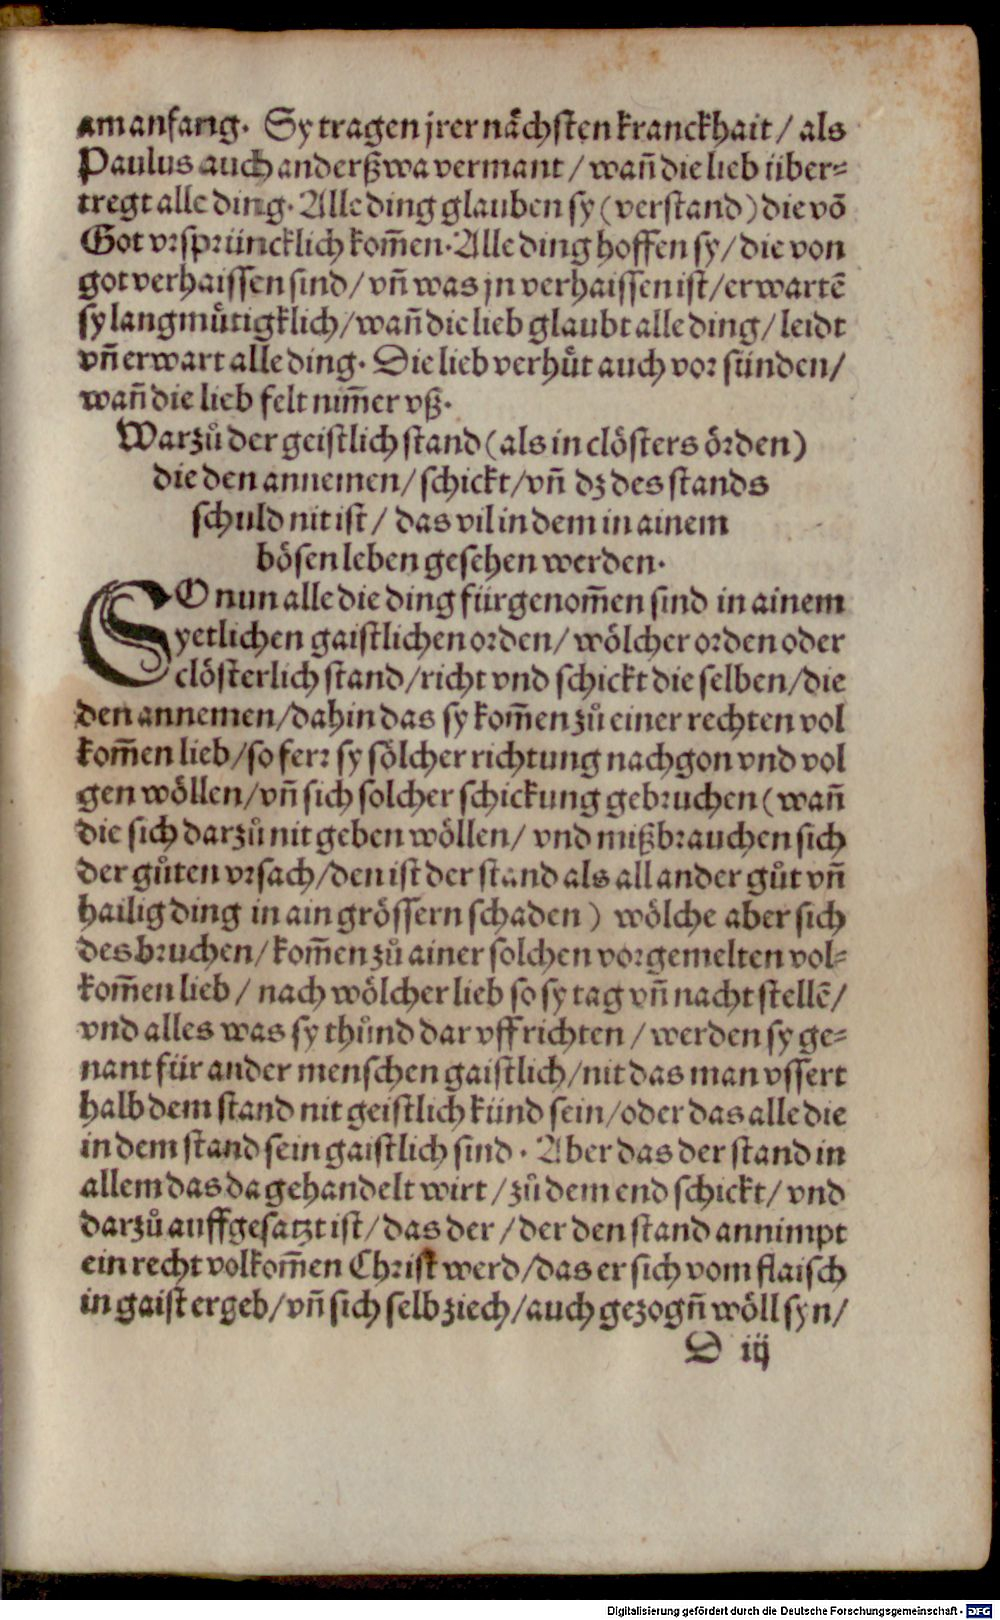 am anfang. Sy tragen jrer nächsten kranckhait / als
Paulus auch anderßwa vermant / wañ die lieb über-
tregt alle ding. Alle ding glauben sy (verstand) die vō
Got vrsprüncklich kom̄en. Alle ding hoffen sy / die von
got verhaissen sind / vñ was jn verhaissen ist / erwartē
sy langmuͤtigklich / wañ die lieb glaubt alle ding / leidt
vñ erwart alle ding. Die lieb verhuͤt auch vor sünden /
wañ die lieb felt nim̄er vß.
Warzuͦ der geistlich stand (als in clösters örden)
die den annemen / schickt / vñ dz des stands
schuld nit ist / das vil in dem in ainem
bösen leben gesehen werden.
SO nun alle die ding fürgenom̄en sind in ainem
yetlichen gaistlichen orden / wölcher orden oder
clösterlich stand / richt vnd schickt die selben / die
den annemen / dahin das sy kom̄en zuͦ einer rechten vol
kom̄en lieb / so ferr sy sölcher richtung nachgon vnd vol
gen wöllen / vñ sich solcher schickung gebruchen (wañ
die sich darzuͦ nit geben wöllen / vnd mißbrauchen sich
der guͦten vrsach / den ist der stand als all ander guͦt vñ
hailig ding in ain grössern schaden) wölche aber sich
des bruchen / kom̄en zuͦ ainer solchen vorgemelten vol-
kom̄en lieb / nach wölcher lieb so sy tag vñ nacht stellē /
vnd alles was sy thuͦnd dar vff richten / werden sy ge-
nant für ander menschen gaistlich / nit das man vssert
halb dem stand nit geistlich künd sein / oder das alle die
in dem stand sein gaistlich sind. Aber das der stand in
allem das da gehandelt wirt / zuͦ dem end schickt / vnd
darzuͦ auffgesatzt ist / das der / der den stand annimpt
ein recht volkom̄en Christ werd / das er sich vom flaisch
in gaist ergeb / vñ sich selb ziech / auch gezogñ wöll syn /
D iij
Digitalisierung gefördert durch die Deutsche Forschungsgemeinschaft - DFG